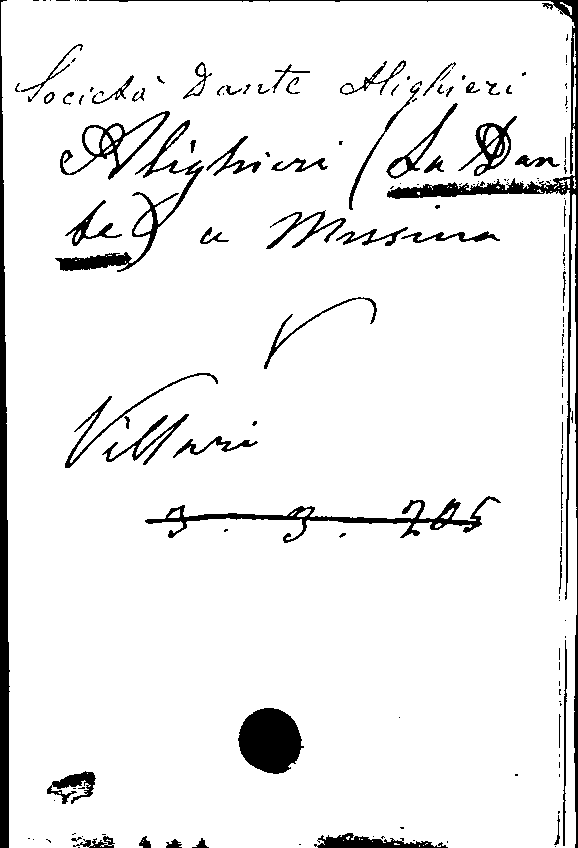 Società Dante Alighieri
Alighieri (La Dan
te) a Messina
V
Villari
3. 3. 205